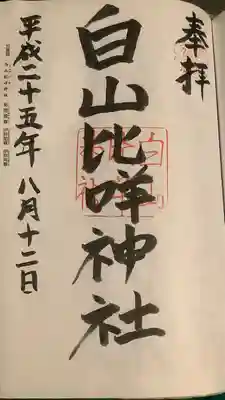 奉拝
白山比咩神社
平成二十五年 八月十二日